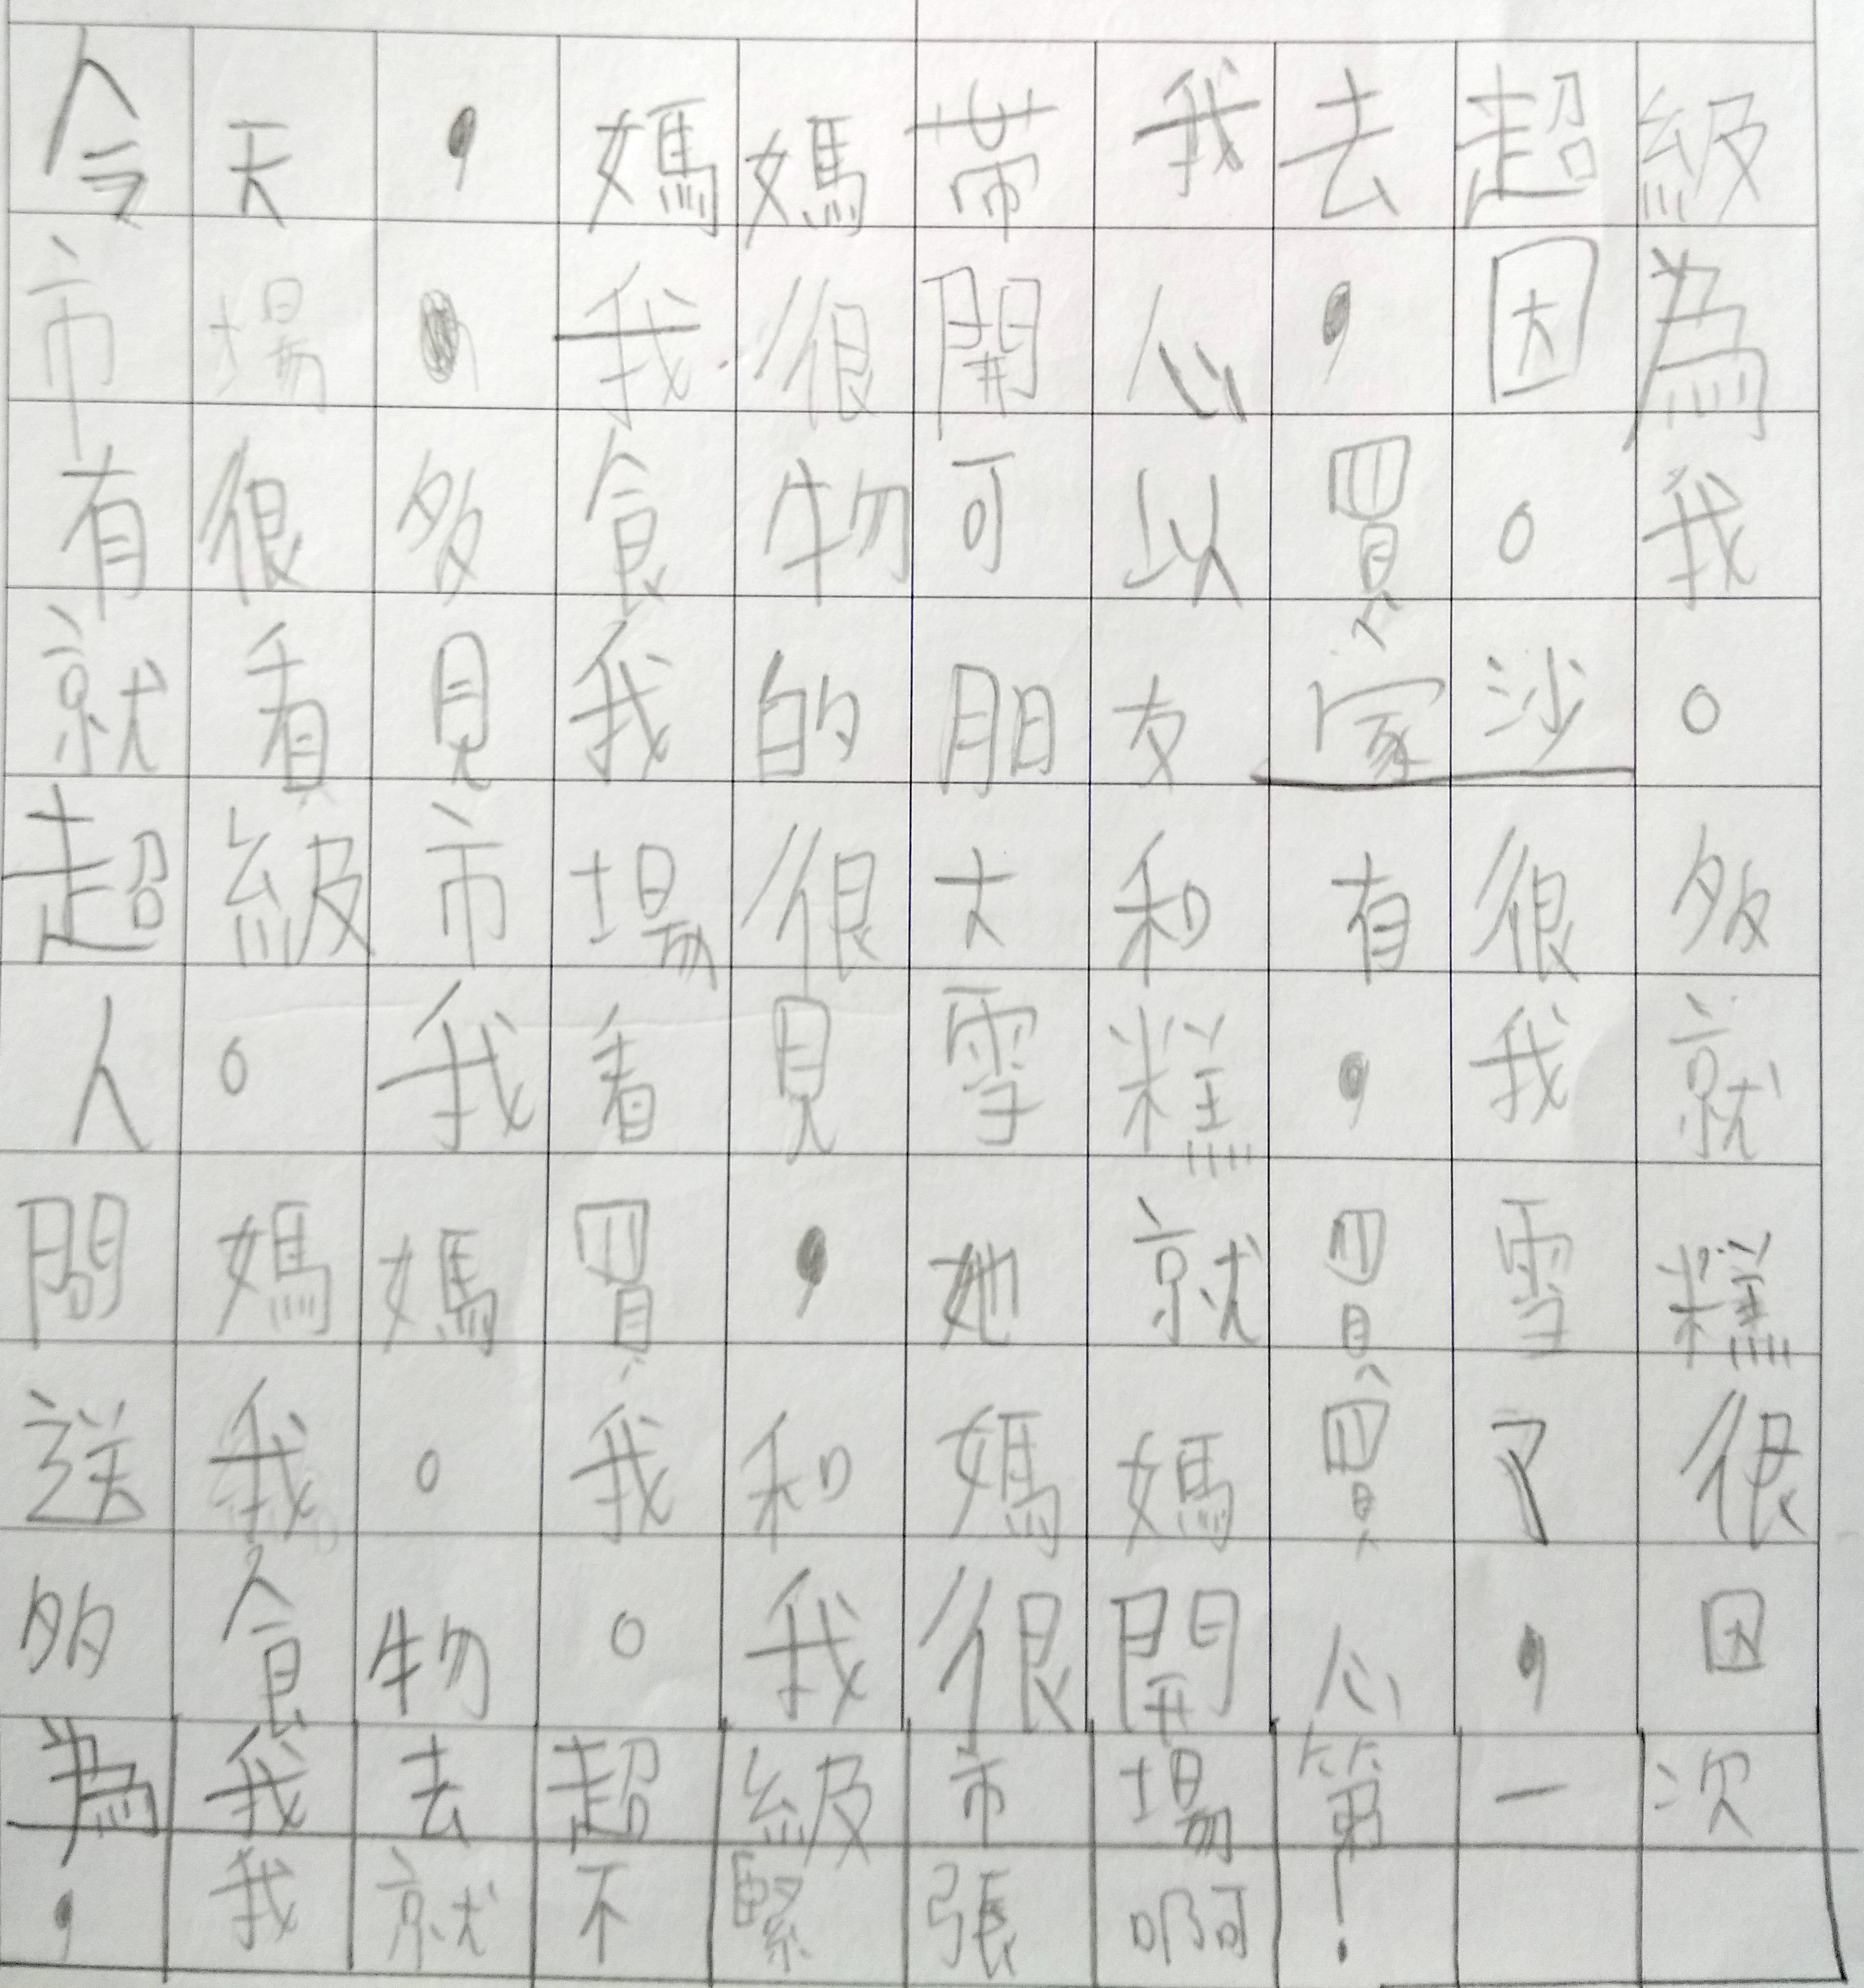 今天，媽媽帶我去超級
市場，我很開心，因為
有很多食物可以買。我
就看見我的朋友家沙。
超級市場很大和有很多
人。我看見雪糕，我就
問媽媽買，她就買雪糕
送我。我和媽媽買了很
多食物。我很開心，因
為我去超級市場第一次
，我就不緊張啊！